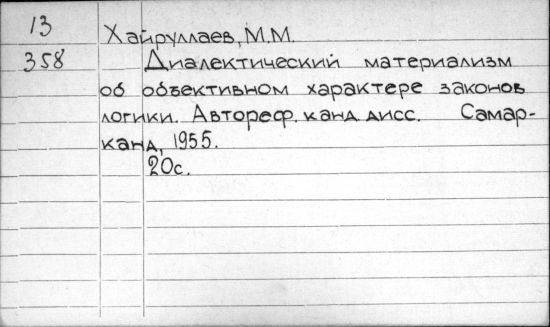 13
Хайруллаев, М.М.
358 Диалектический материализм
об объективном характере законов
логики. Автореф. канд. дисс. Самар-
канд, 1955.
20с.